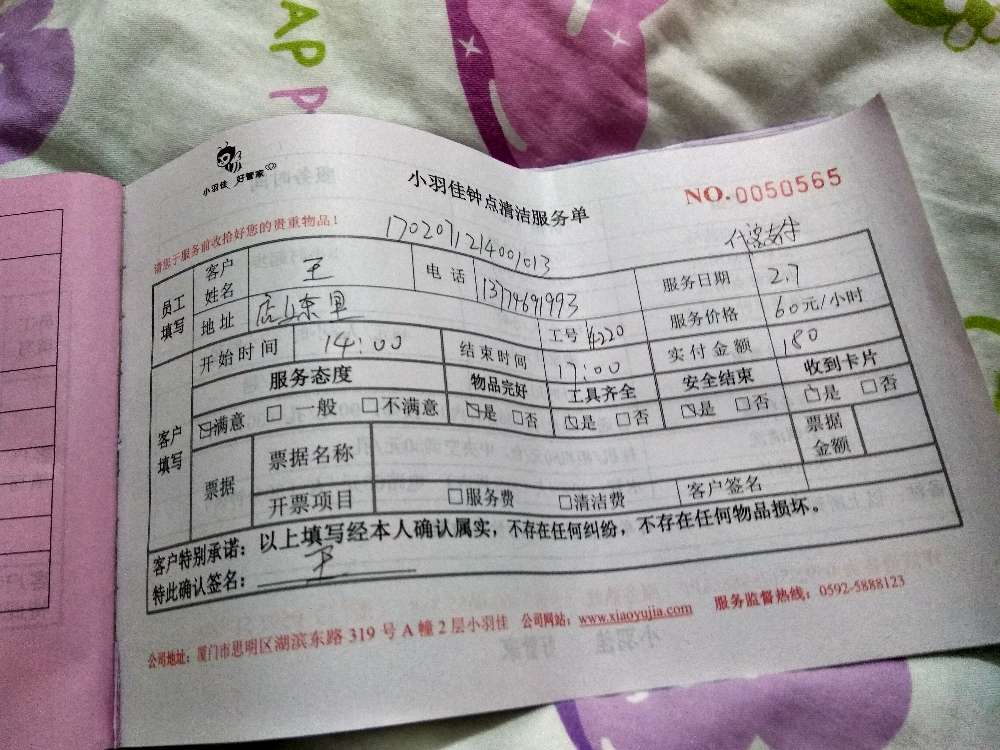 AP
AP P
小羽佳 好管家
小羽佳钟点清洁服务单
NO.0050565
请您于服务前收拾好您的贵重物品！
17020712140001013
员工填写
客户姓名 王
电话 13774691993
服务日期 2.7
地址
工号 4520
服务价格 60元/小时
开始时间 14:00
结束时间 17:00
实付金额 180
客户填写
服务态度 物品完好 工具齐全 安全结束 收到卡片
☑满意 □一般 □不满意 ☑是 □否 ☑是 □否 ☑是 □否 ☑是 □否
票据
票据名称
票据金额
开票项目 □服务费 □清洁费 客户签名
客户特别承诺：以上填写经本人确认属实，不存在任何纠纷，不存在任何物品损坏。
特此确认签名： 王
公司地址：厦门市思明区湖滨东路 319 号 A 幢 2 层小羽佳 公司网站：www.xiaoyujia.com 服务监督热线：0592-5888123